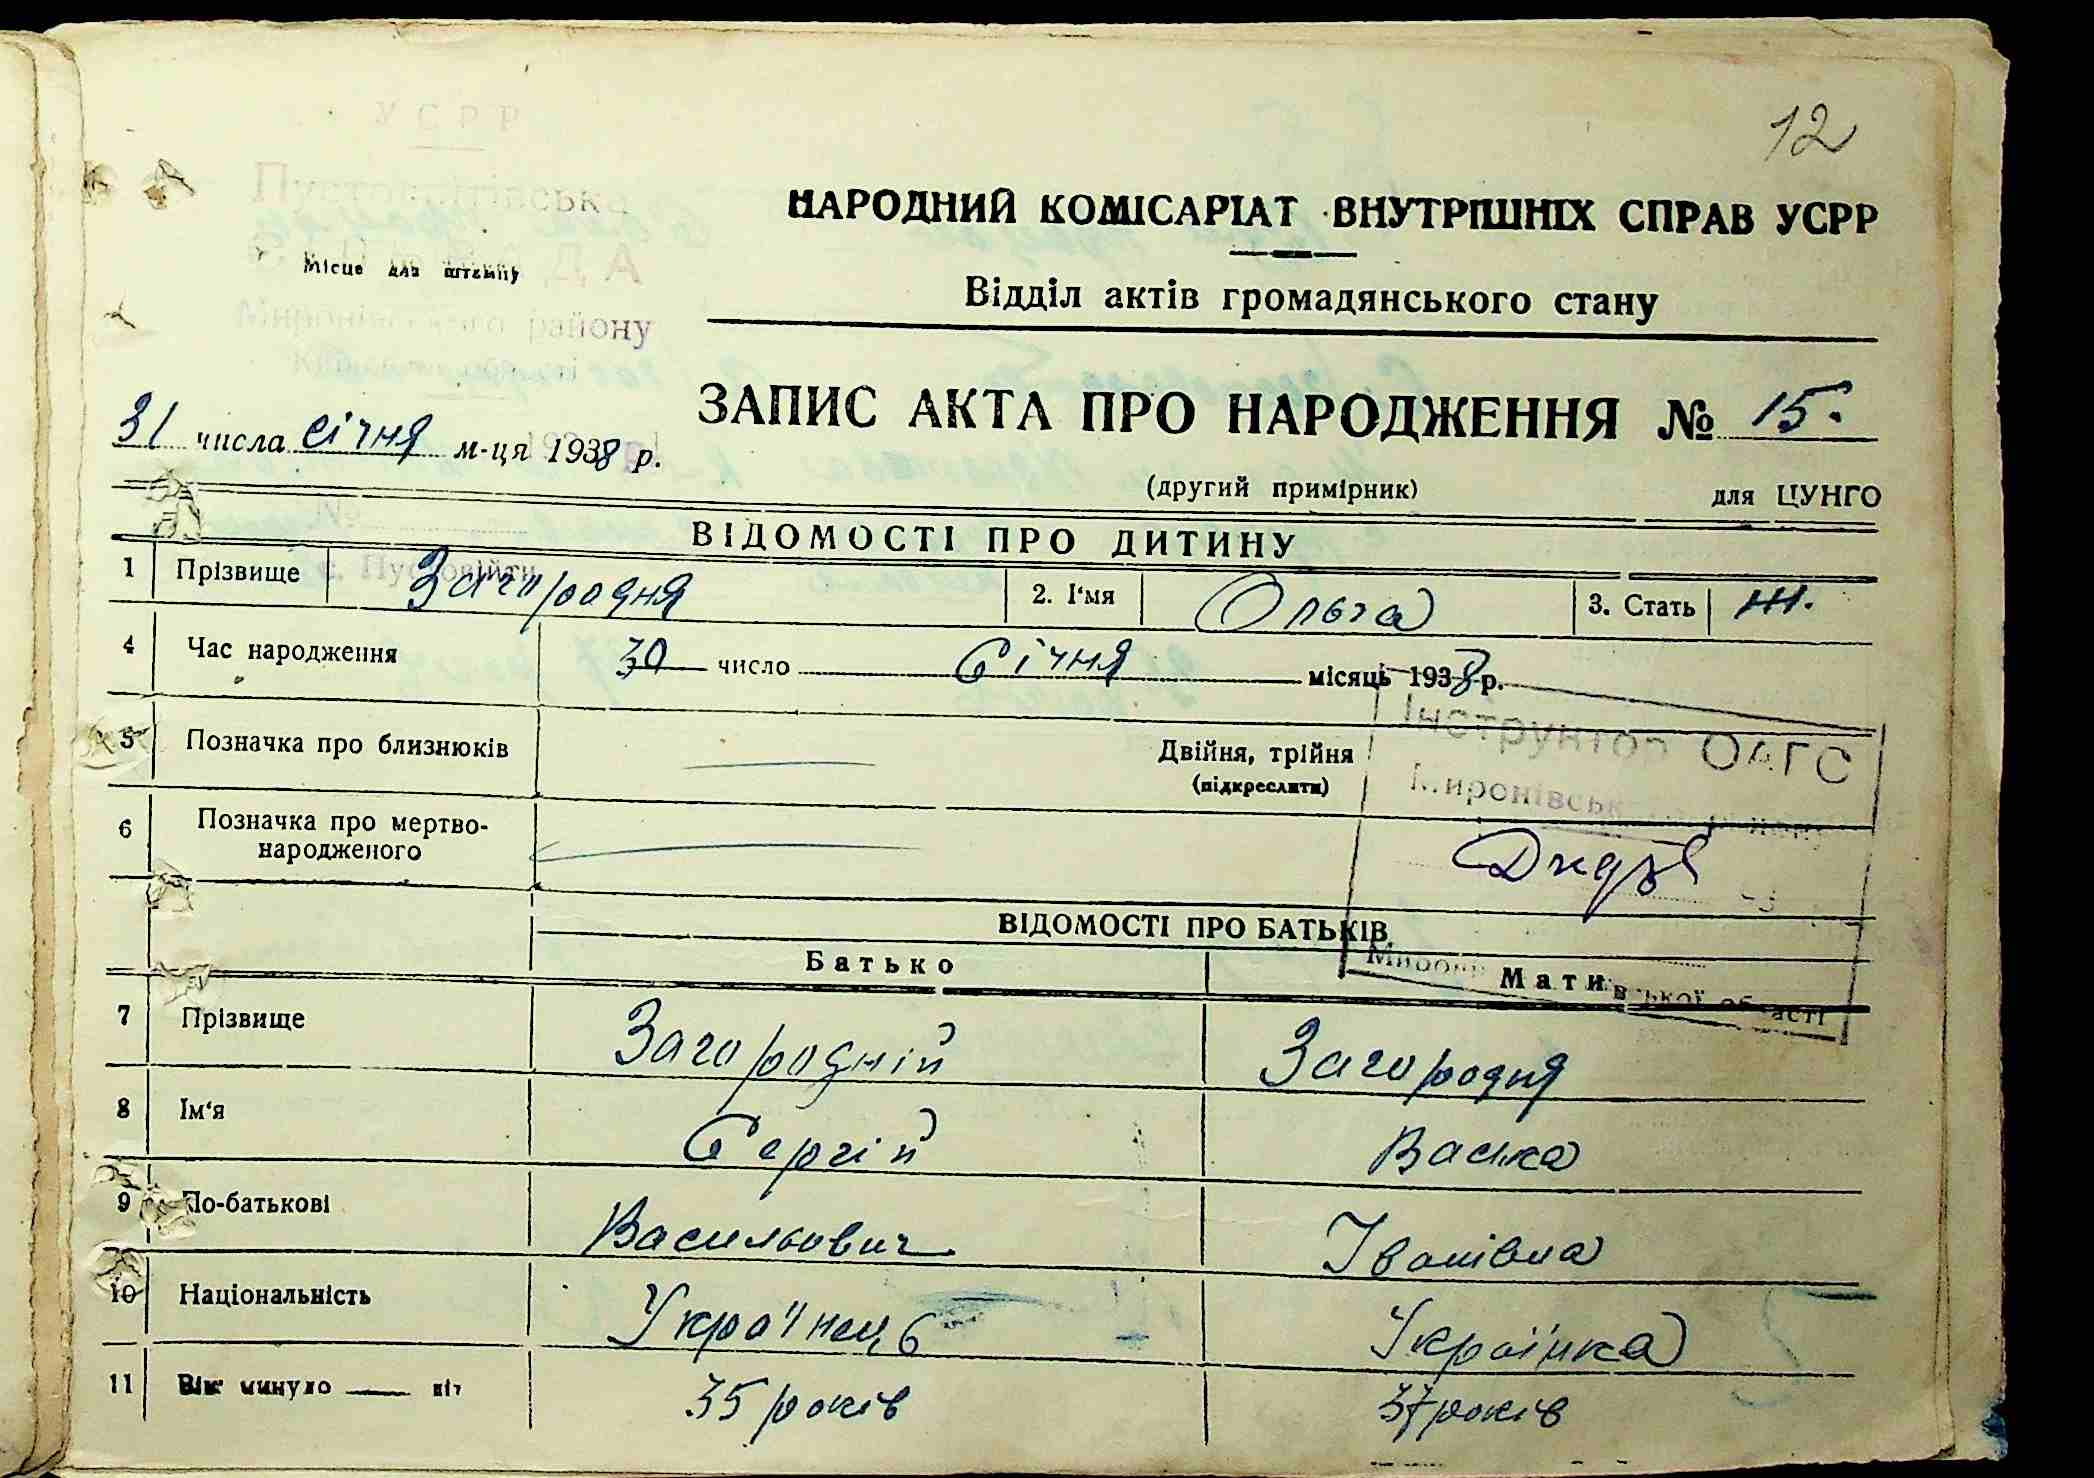 12
УСРР
Пустовітівська
НАРОДНИЙ КОМІСАРІАТ ВНУТРІШНІХ СПРАВ УСРР
СІЛЬРАДА
Місце для штампу
Відділ актів громадянського стану
Миронівського району
Київської області
ЗАПИС АКТА ПРО НАРОДЖЕННЯ № 15.
31 числа січня м-ця 1938 р.
(другий примірник) для ЦУНГО
№
ВІДОМОСТІ ПРО ДИТИНУ
с. Пустовійти
1 Прізвище Загородня 2. І'мя Ольга 3. Стать Ж.
4 Час народження 30 число Січня місяць 1938 р.
Інструктор ОАГС
5 Позначка про близнюків Двійня, трійня
(підкреслити)
Миронівськ
6 Позначка про мертво-
народженого
ВІДОМОСТІ ПРО БАТЬКІВ
Батько Мати
області
7 Прізвище Загородній Загородня
8 Ім'я Сергій Васька
9 По-батькові Васильович Іванівна
10 Національність Українець Українка
11 Вік минуло — літ 35 років 37 років